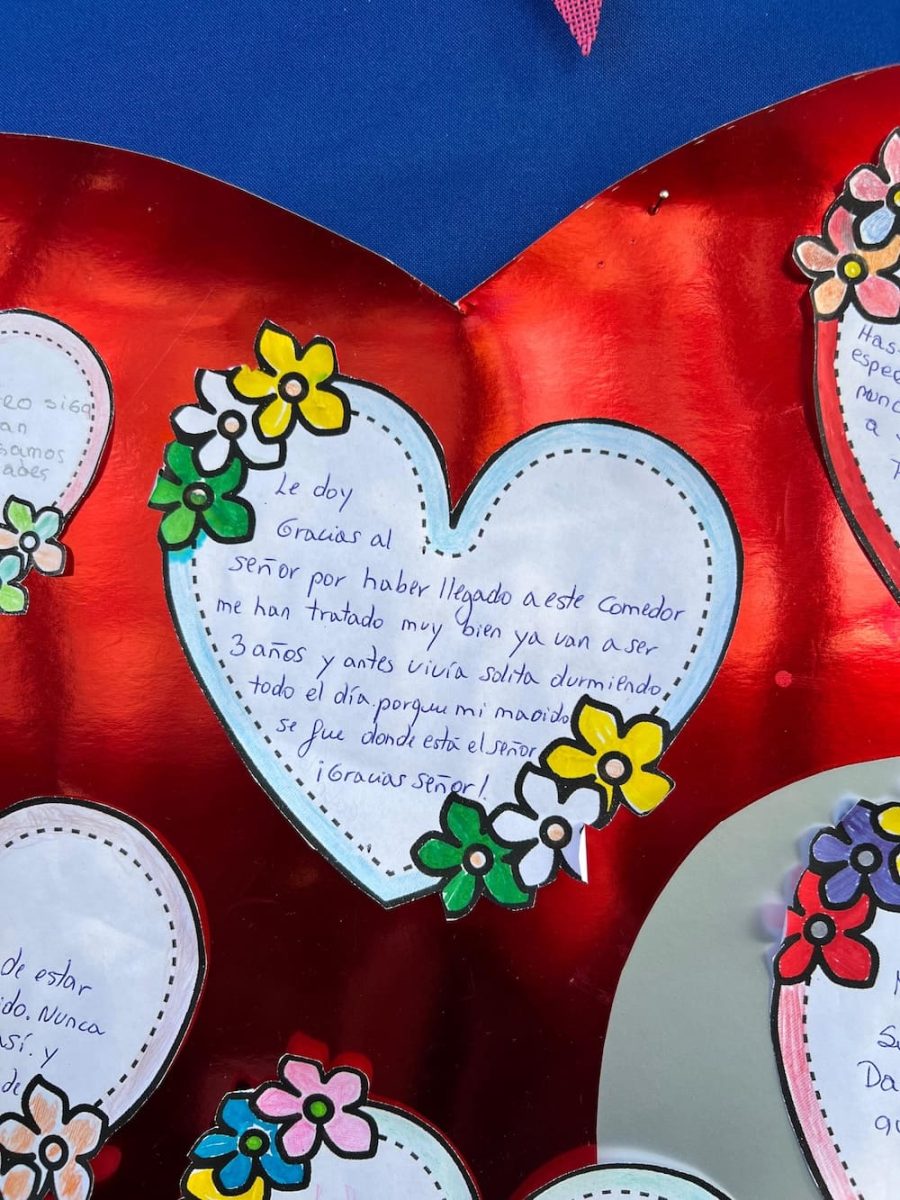 Le doy
Gracias al
señor por haber llegado a este comedor
me han tratado muy bien ya van a ser
3 años y antes vivía solita durmiendo
todo el día porque mi marido
se fue donde está el señor
¡Gracias señor!
siga
an
samos
ades
Has
espec
nunc
a
de estar
ido. Nunca
así. y
de
S
Da
qu